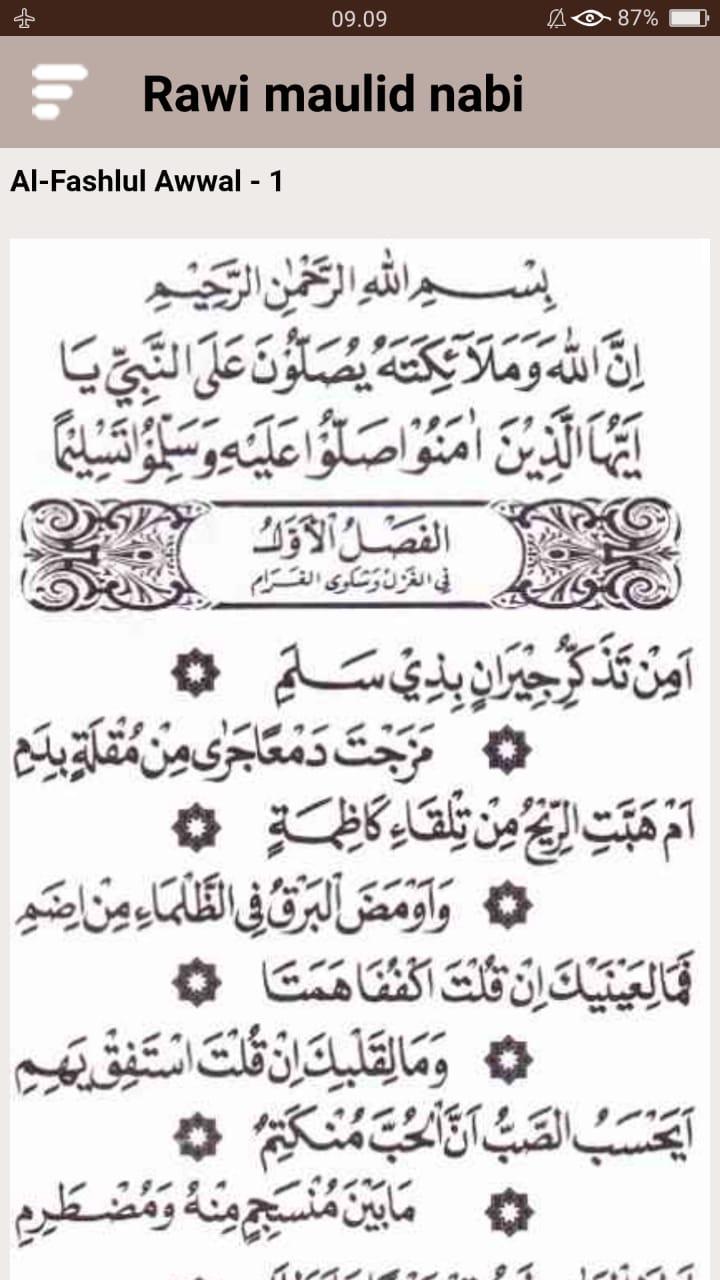 09.09
87%
Rawi maulid nabi
Al-Fashlul Awwal - 1
بِسْمِ اللهِ الرَّحْمٰنِ الرَّحِيْمِ
اِنَّ اللهَ وَمَلَآئِكَتَهُ يُصَلُّوْنَ عَلَى النَّبِيِّ يَا
اَيُّهَا الَّذِيْنَ اٰمَنُوْا صَلُّوْا عَلَيْهِ وَسَلِّمُوْا تَسْلِيْمًا
الفَصْلُ الْاَوَّلُ
فِي الغَزْلِ وَشَكْوَى الغَرَامِ
اَمِنْ تَذَكُّرِ جِيْرَانٍ بِذِيْ سَلَمِ
مَزَجْتَ دَمْعًا جَرٰى مِنْ مُقْلَةٍ بِدَمِ
اَمْ هَبَّتِ الرِّيْحُ مِنْ تِلْقَاءِ كَاظِمَةٍ
وَاَوْمَضَ الْبَرْقُ فِي الظَّلْمَاءِ مِنْ اِضَمِ
فَمَا لِعَيْنَيْكَ اِنْ قُلْتَ اكْفُفَا هَمَتَا
وَمَا لِقَلْبِكَ اِنْ قُلْتَ اسْتَفِقْ يَهِمِ
اَيَحْسَبُ الصَّبُّ اَنَّ الْحُبَّ مُنْكَتِمٌ
مَا بَيْنَ مُنْسَجِمٍ مِنْهُ وَمُضْطَرِمِ